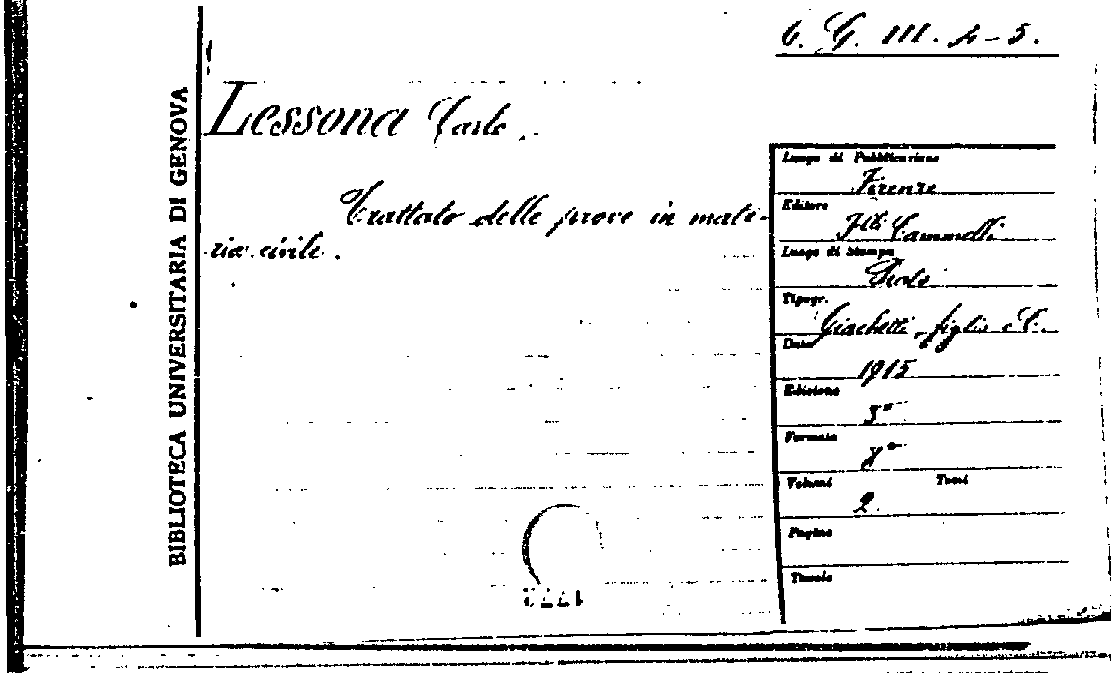 6. G. III. 4-5.
BIBLIOTECA UNIVERSITARIA DI GENOVA
Lessona Carlo.
Trattato delle prove in mate-
ria civile.
Luogo di Pubblicazione
Firenze
Editore
F.lli Cammelli
Luogo di Stampa
Prato
Tipogr.
Giachetti, figlio e C.
Data
1915
Edizione
3ª
Formato
8°
Volumi Tomi
2.
Pagine
Tavole